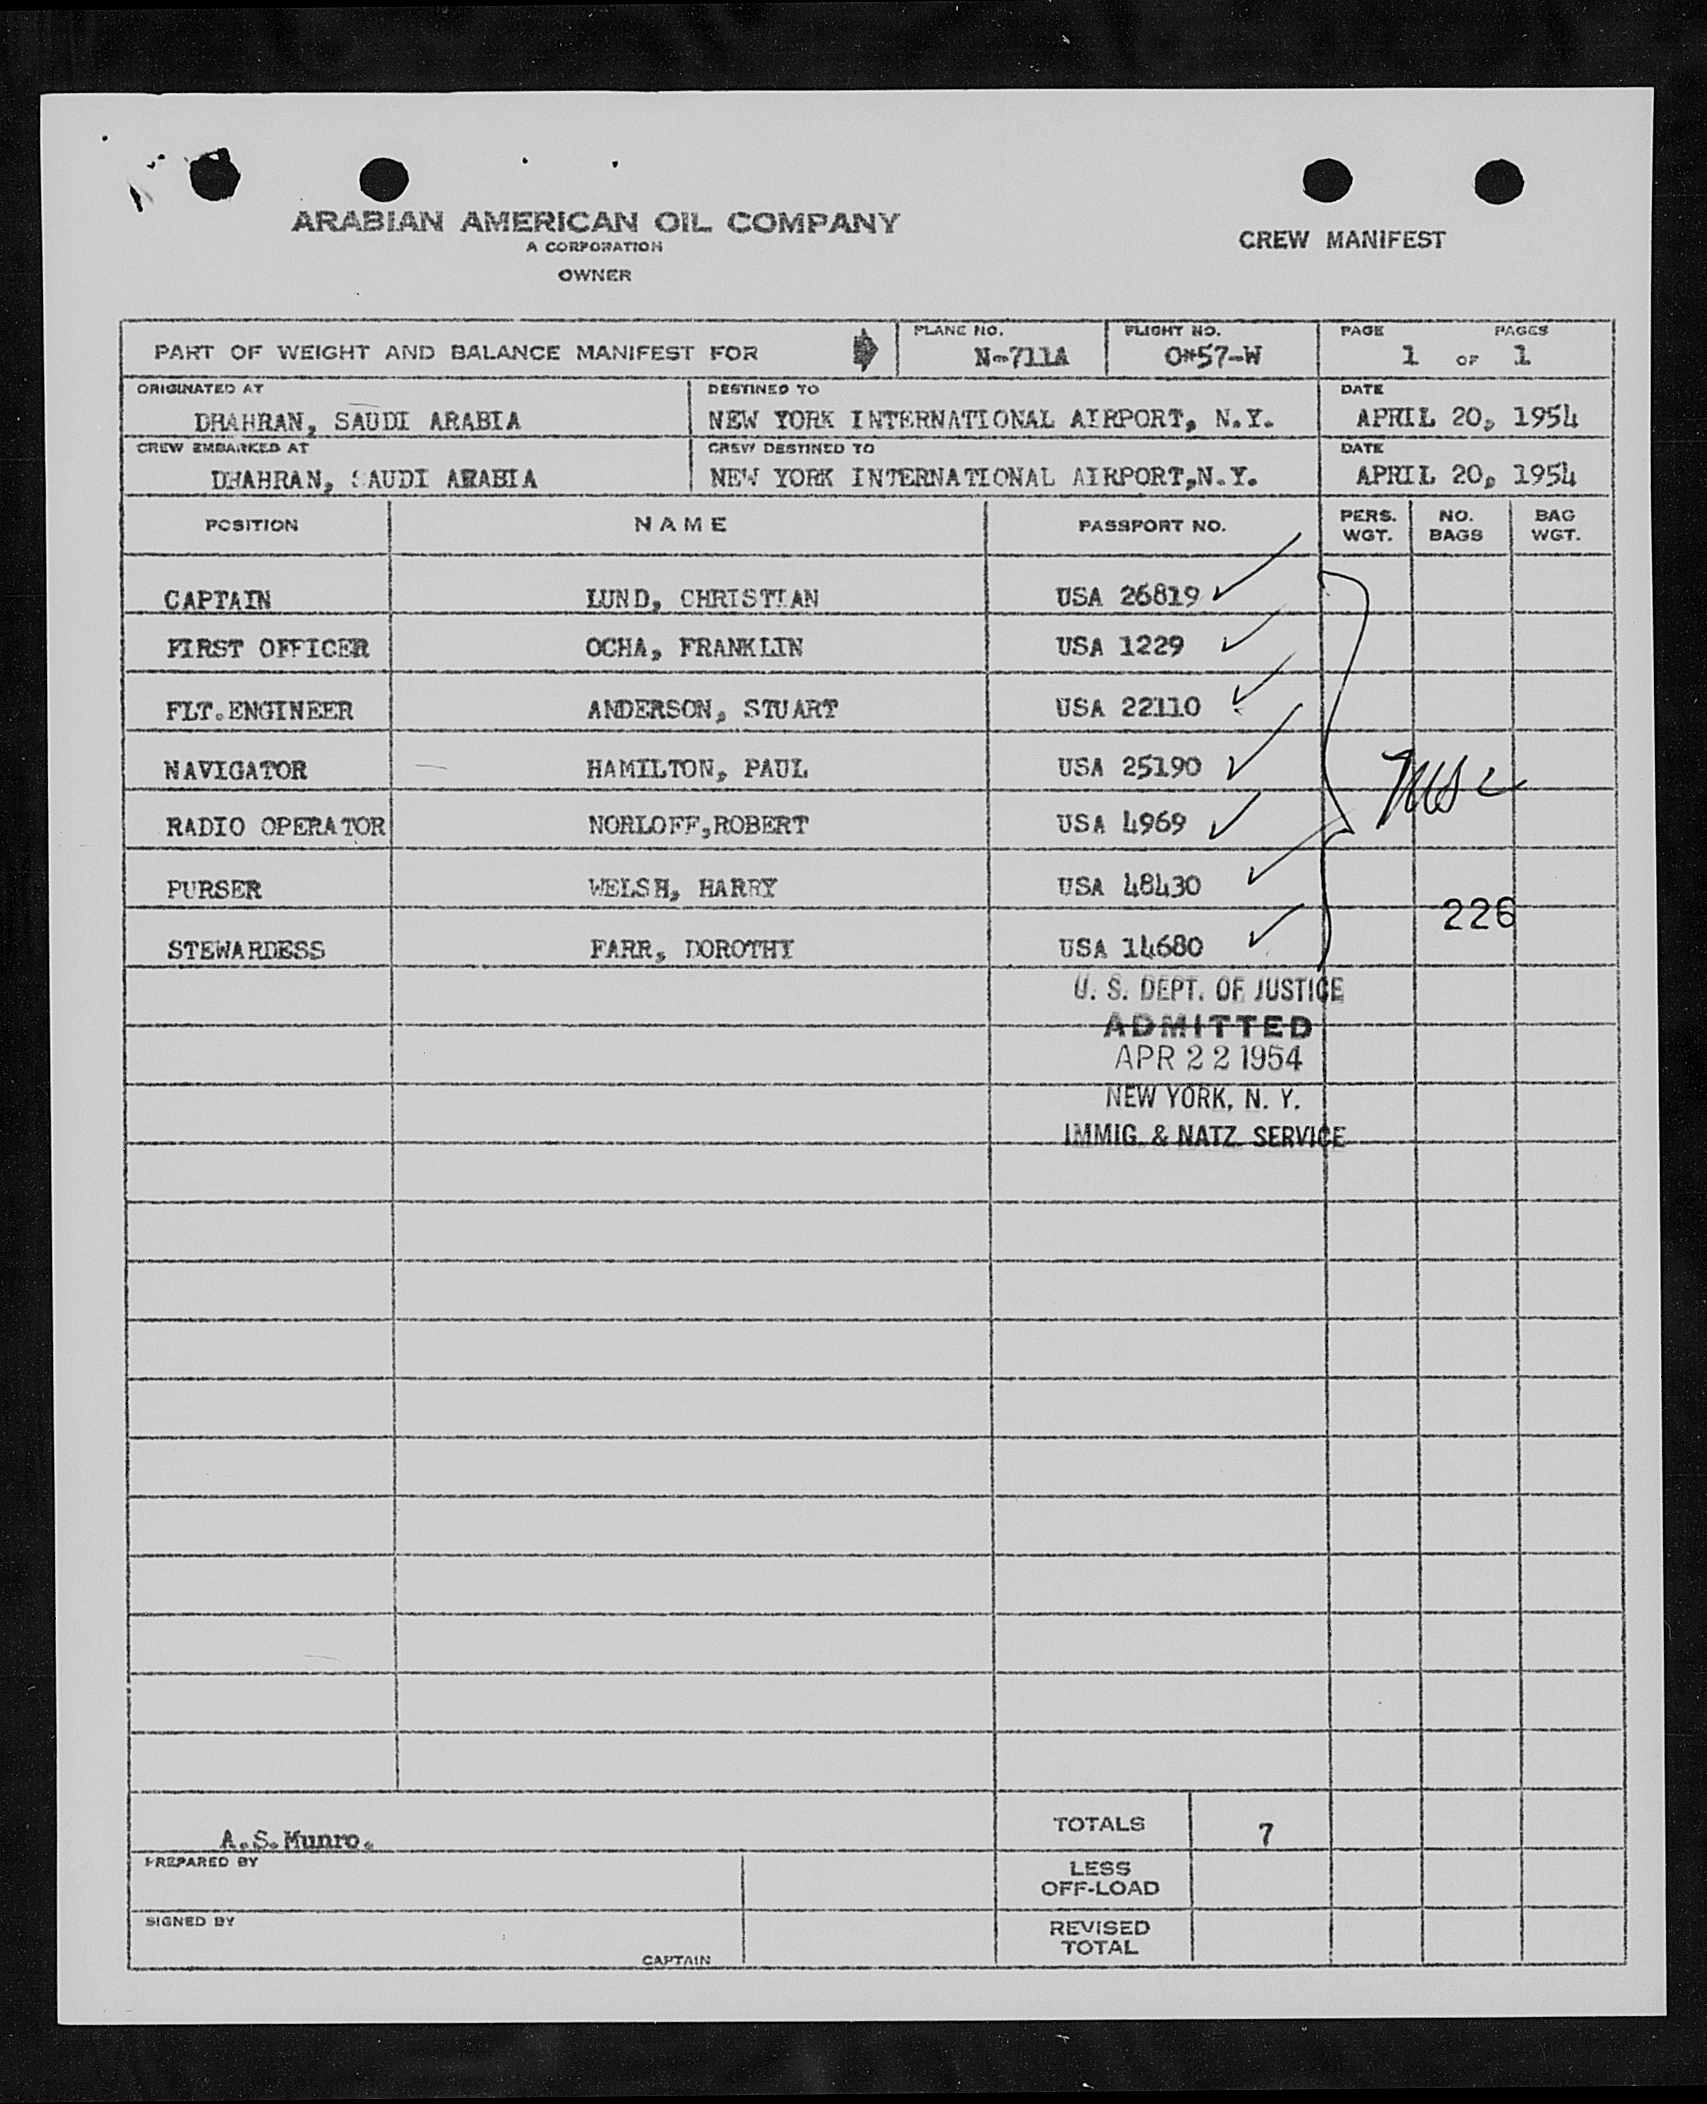 ARABIAN AMERICAN OIL COMPANY
A CORPORATION
OWNER
CREW MANIFEST
PART OF WEIGHT AND BALANCE MANIFEST FOR
PLANE NO.
N-711A
FLIGHT NO.
O*57-W
PAGE PAGES
1 OF 1
ORIGINATED AT
DHAHRAN, SAUDI ARABIA
DESTINED TO
NEW YORK INTERNATIONAL AIRPORT, N.Y.
DATE
APRIL 20, 1954
CREW EMBARKED AT
DHAHRAN, SAUDI ARABIA
CREW DESTINED TO
NEW YORK INTERNATIONAL AIRPORT,N.Y.
DATE
APRIL 20, 1954
POSITION NAME PASSPORT NO. PERS. WGT. NO. BAGS BAG WGT.
CAPTAIN LUND, CHRISTIAN USA 26819
FIRST OFFICER OCHA, FRANKLIN USA 1229
FLT.ENGINEER ANDERSON, STUART USA 22110
NAVIGATOR HAMILTON, PAUL USA 25190
RADIO OPERATOR NORLOFF,ROBERT USA 4969
PURSER WELSH, HARRY USA 48430
226
STEWARDESS FARR, DOROTHY USA 14680
U. S. DEPT. OF JUSTICE
ADMITTED
APR 22 1954
NEW YORK, N. Y.
IMMIG. & NATZ. SERVICE
A.S.Munro.
PREPARED BY
SIGNED BY
CAPTAIN
TOTALS 7
LESS
OFF-LOAD
REVISED
TOTAL